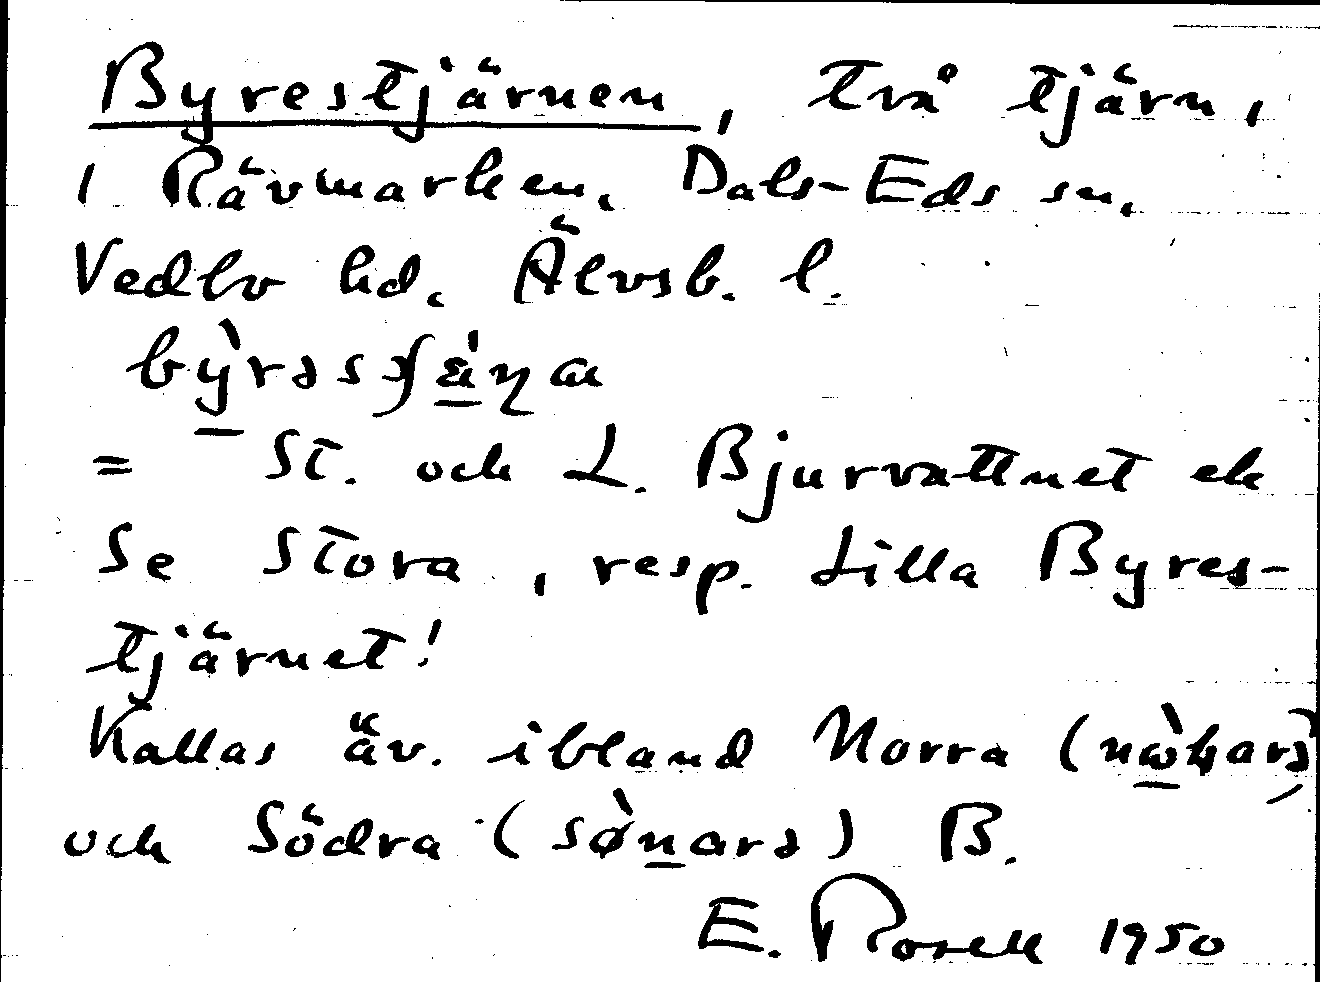 Byrestjärnen, två tjärn,
i Rävmarken. Dals-Eds sn.
Vedbo hd. Älvsb. l.
= St. och L. Bjurvattnet ek
Se Stora, resp. Lilla Byres-
tjärnet!
Kallas äv. ibland Norra
och Södra (sø̀narə) B.
E. Rosell 1950